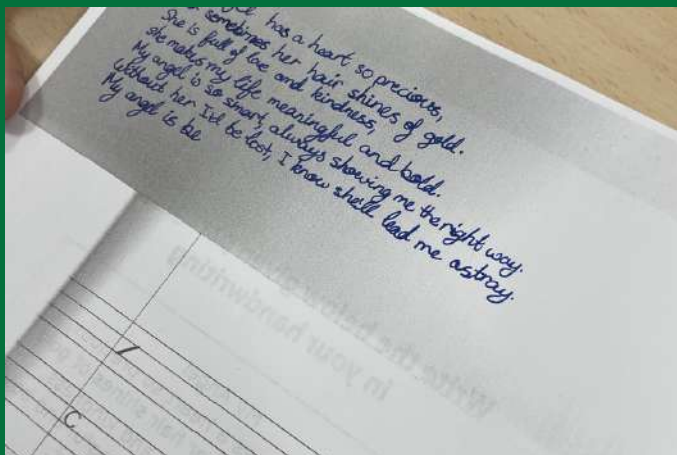 has a heart so precious,
sometimes her hair shines of gold.
She is full of love and kindness,
she makes my life meaningful and bold.
My angel is so smart, always showing me the right way.
Without her I'd be lost, I know she'll lead me astray.
My angel is be
Write the below
in your handwriting
C